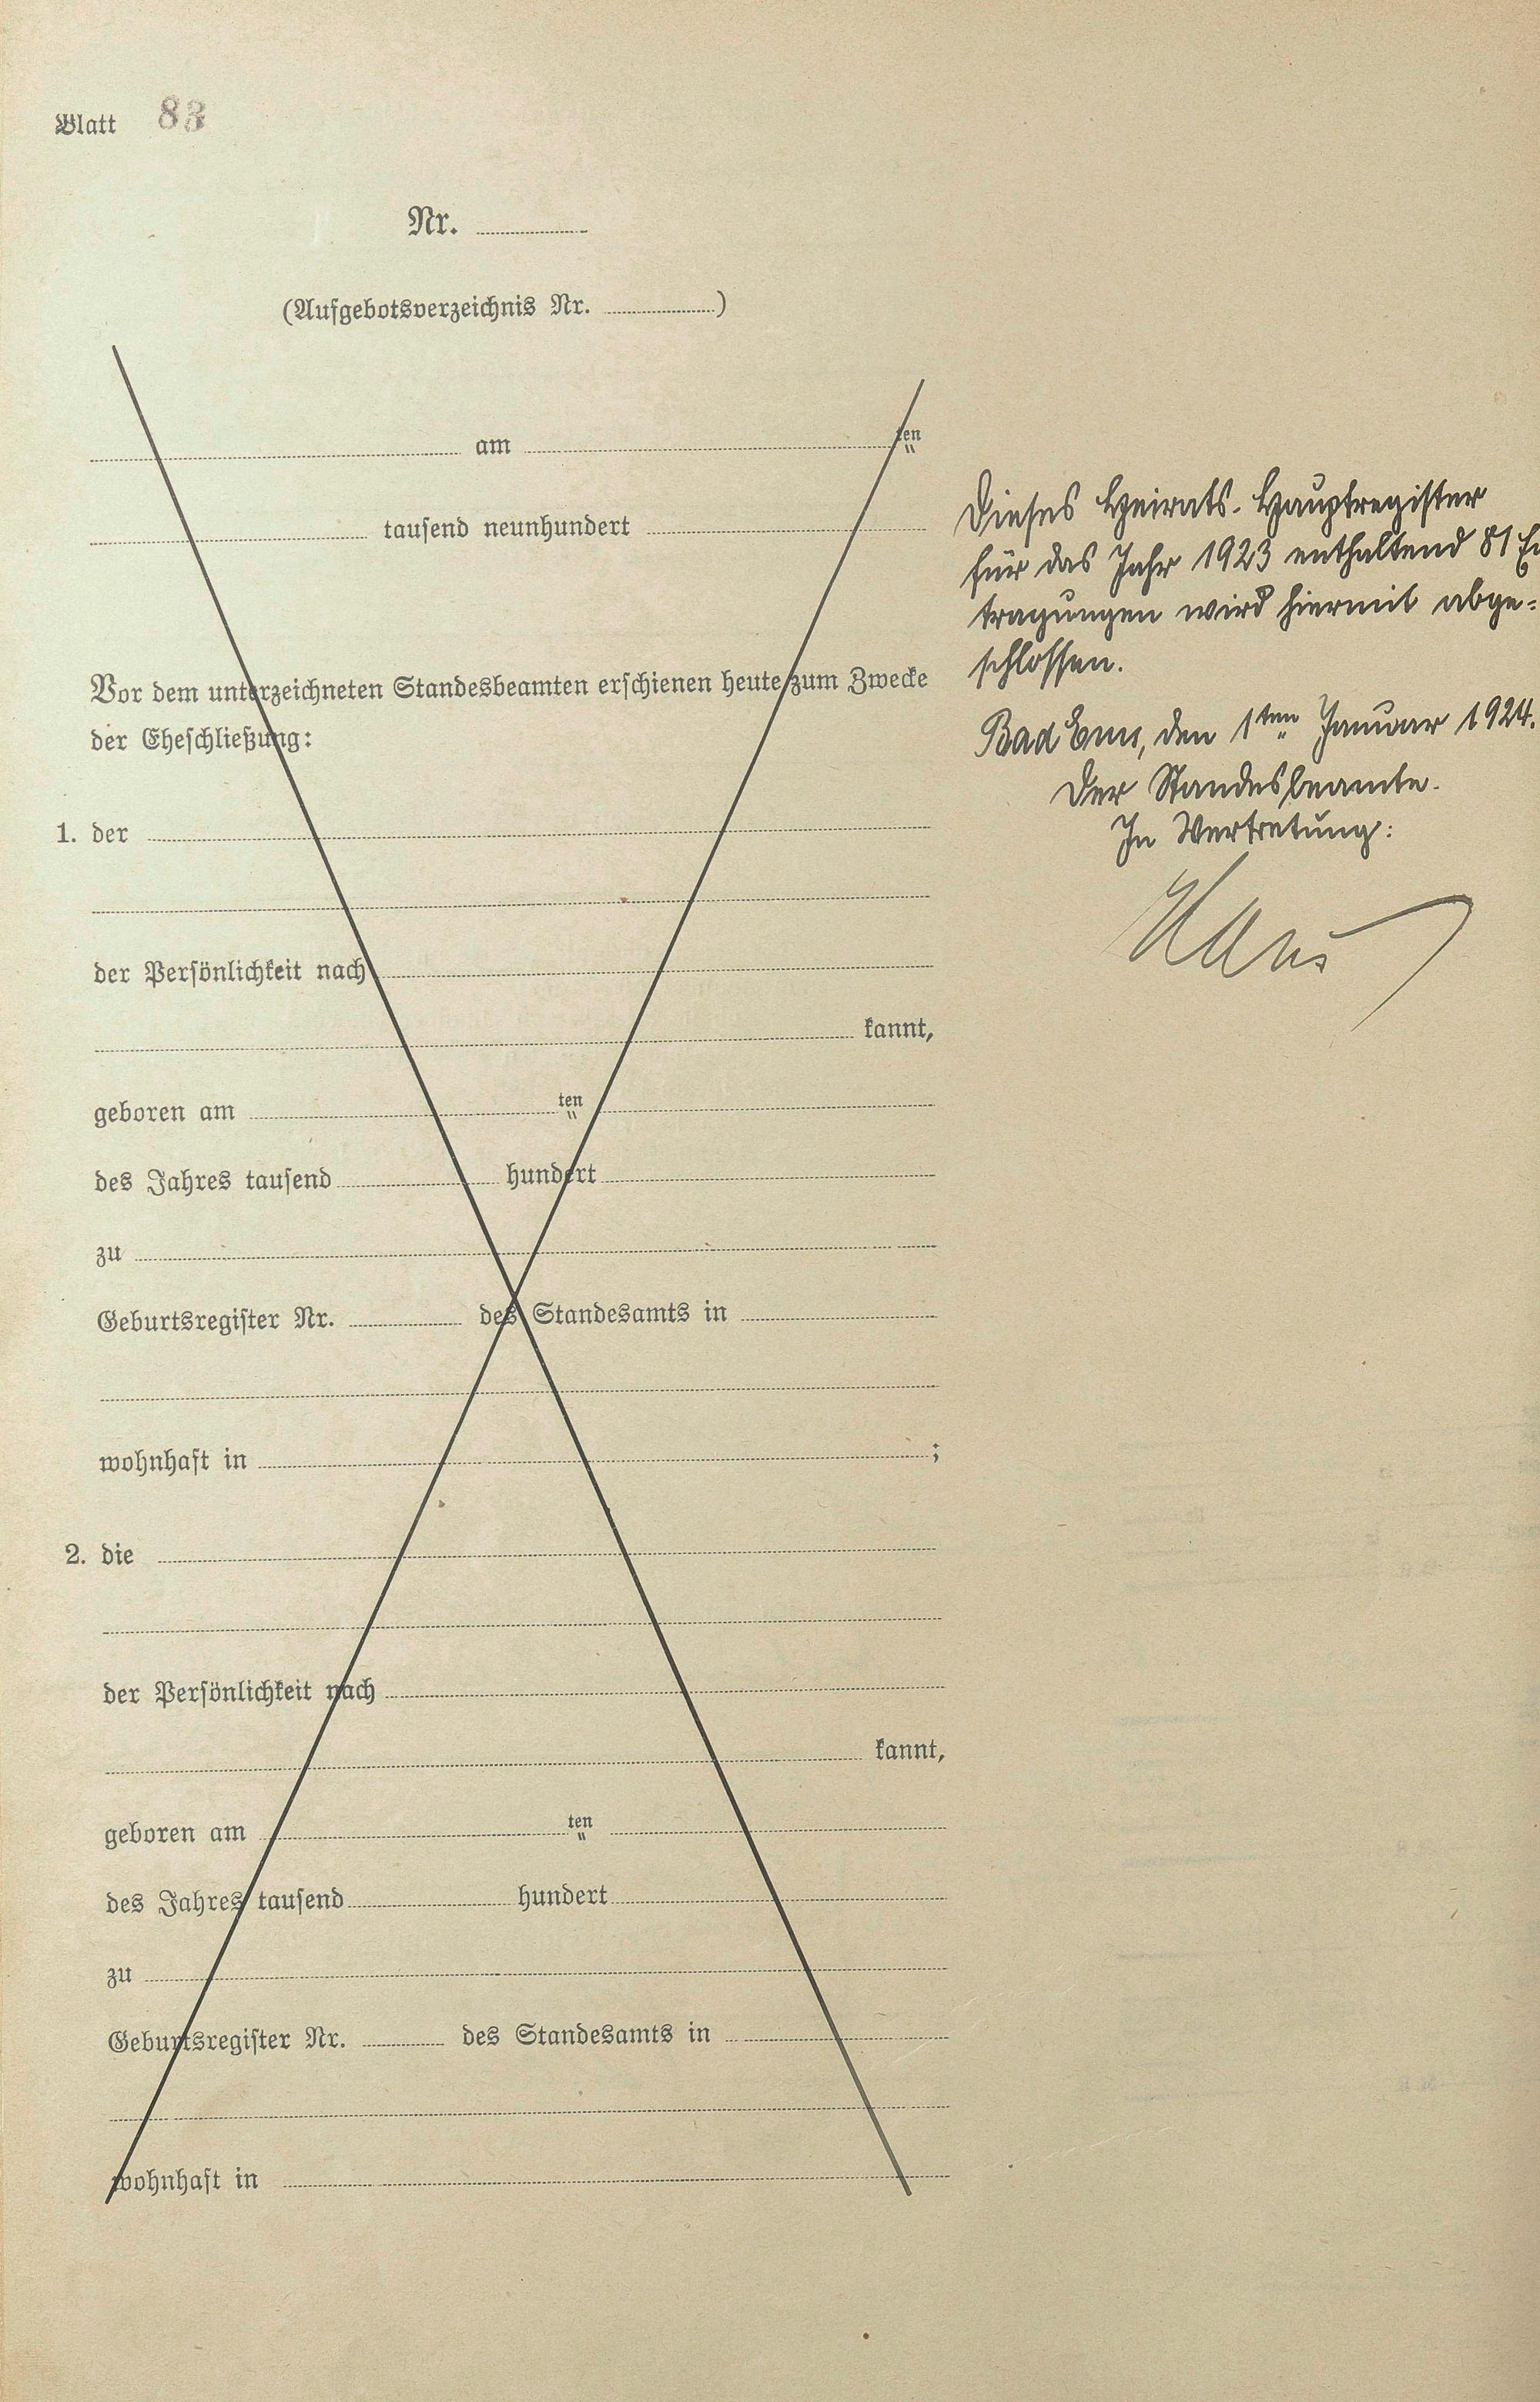 Blatt 83
Nr.
(Aufgebotsverzeichnis Nr. )
am ten
tausend neunhundert
Vor dem unterzeichneten Standesbeamten erschienen heute zum Zwecke
der Eheschließung:
1. der
der Persönlichkeit nach
kannt,
geboren am ten
des Jahres tausend hundert
zu
Geburtsregister Nr. des Standesamts in
wohnhaft in ;
2. die
der Persönlichkeit nach
kannt,
geboren am ten
des Jahres tausend hundert
zu
Geburtsregister Nr. des Standesamts in
wohnhaft in
Dieses Heirats-Hauptregister
für das Jahr 1923 enthaltend 81 Ei
tragungen wird hiermit abge=
schlossen.
Bad Ems, den 1ten Januar 1924.
Der Standesbeamte.
In Vertretung: